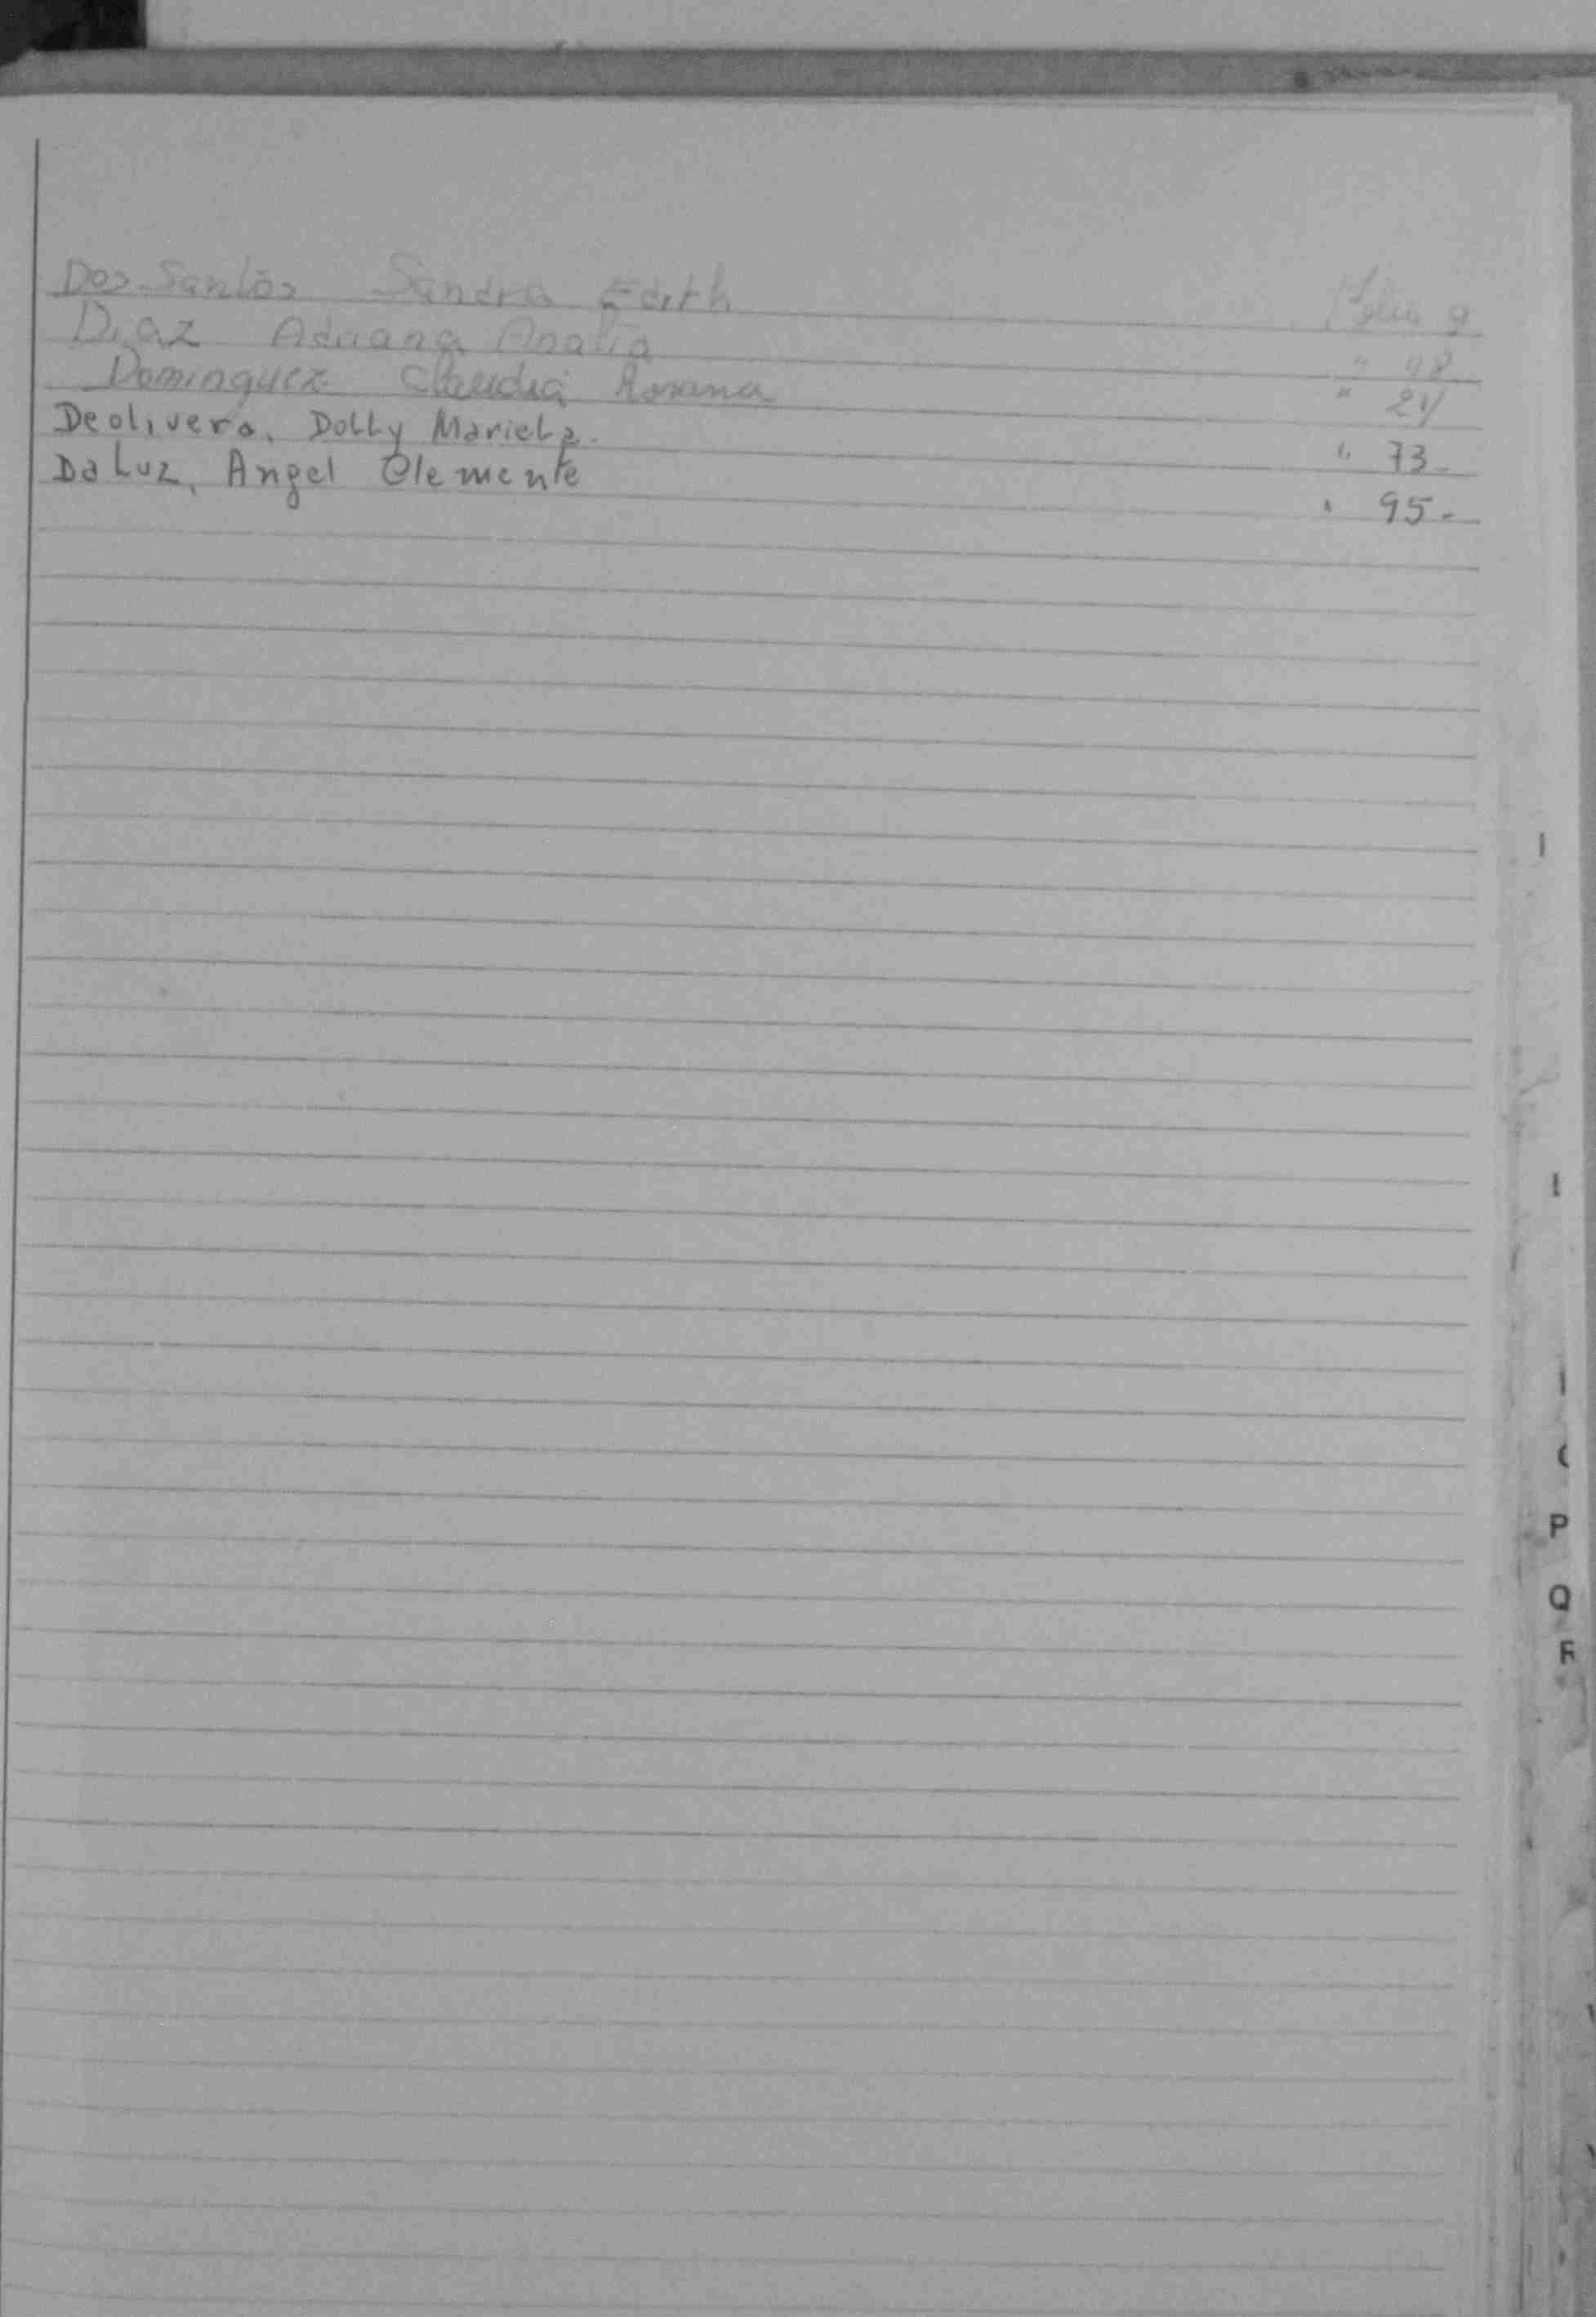 Dos Santos Sandra Edith Folio 9
Diaz Adriana Analia " 98
Dominguez Claudia Rosana " 24
Deolivera, Dolly Mariela. " 73-
Da Luz, Angel Clemente " 95-
P
Q
R